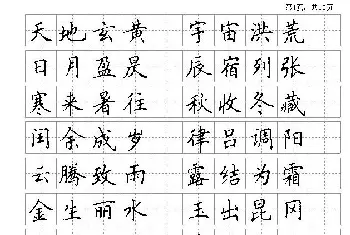 天地玄黄 宇宙洪荒
日月盈昃 辰宿列张
寒来暑往 秋收冬藏
闰余成岁 律吕调阳
云腾致雨 露结为霜
金生丽水 玉出昆冈